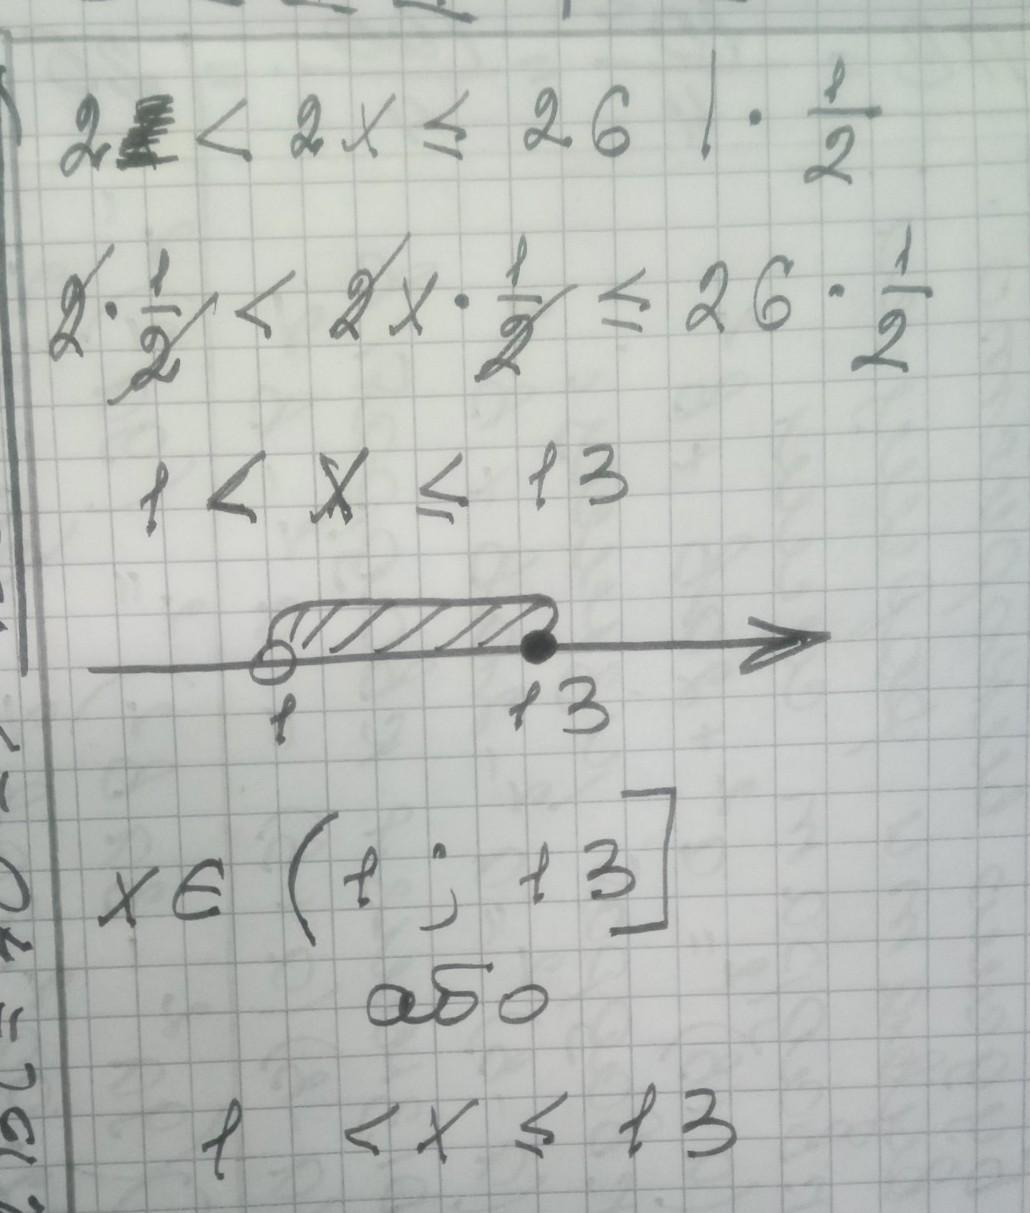 2 < 2x ≤ 26 | · 1/2
2 · 1/2 < 2x · 1/2 ≤ 26 · 1/2
1 < x ≤ 13
1 13
x ∈ (1 ; 13]
або
1 < x ≤ 13